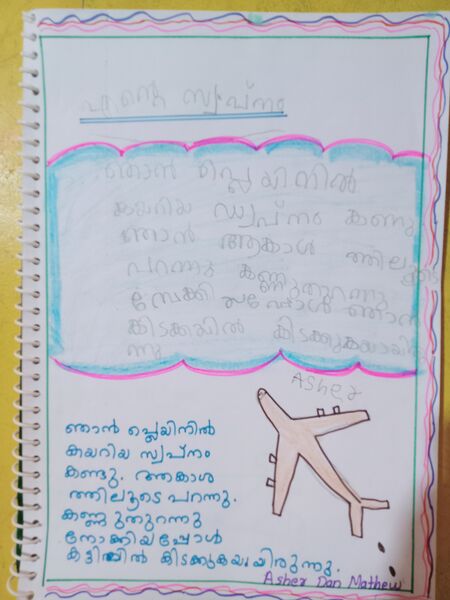 എന്റെ സ്വപ്നം
ഞാൻ പ്ലെയിനിൽ
കയറിയ സ്വപ്നം കണു
ഞാൻ ആകാശ ത്തിലൂടെ
പറന്നു കണ്ണുതുറന്നു
ഞാൻ
കിടക്കയിൽ കിടക്കുകയായിരു
ന്നു
Asher
ഞാൻ പ്ലെയിനിൽ
കയറിയ സ്വപ്നം
കണ്ടു. ആകാശ
ത്തിലൂടെ പറന്നു.
കണ്ണുതുറന്നു
നോക്കിയപ്പോൾ
കട്ടിലിൽ കിടക്കുകയായിരുന്നു.
Asher Dan Mathew